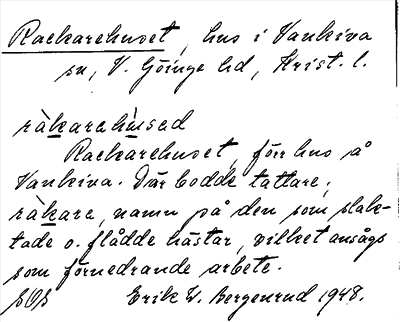 Rackarehuset, hus i Vankiva
sn, V. Göinge hd, Krist. l.
räkarehùsed
Rackarehuset, förr hus å
Vankiva. Där bodde tattare;
räkare, namn på den som slak-
tade o. flådde hästar, vilket ansågs
som förnedrande arbete.
Erik W. Bergenrud 1948.